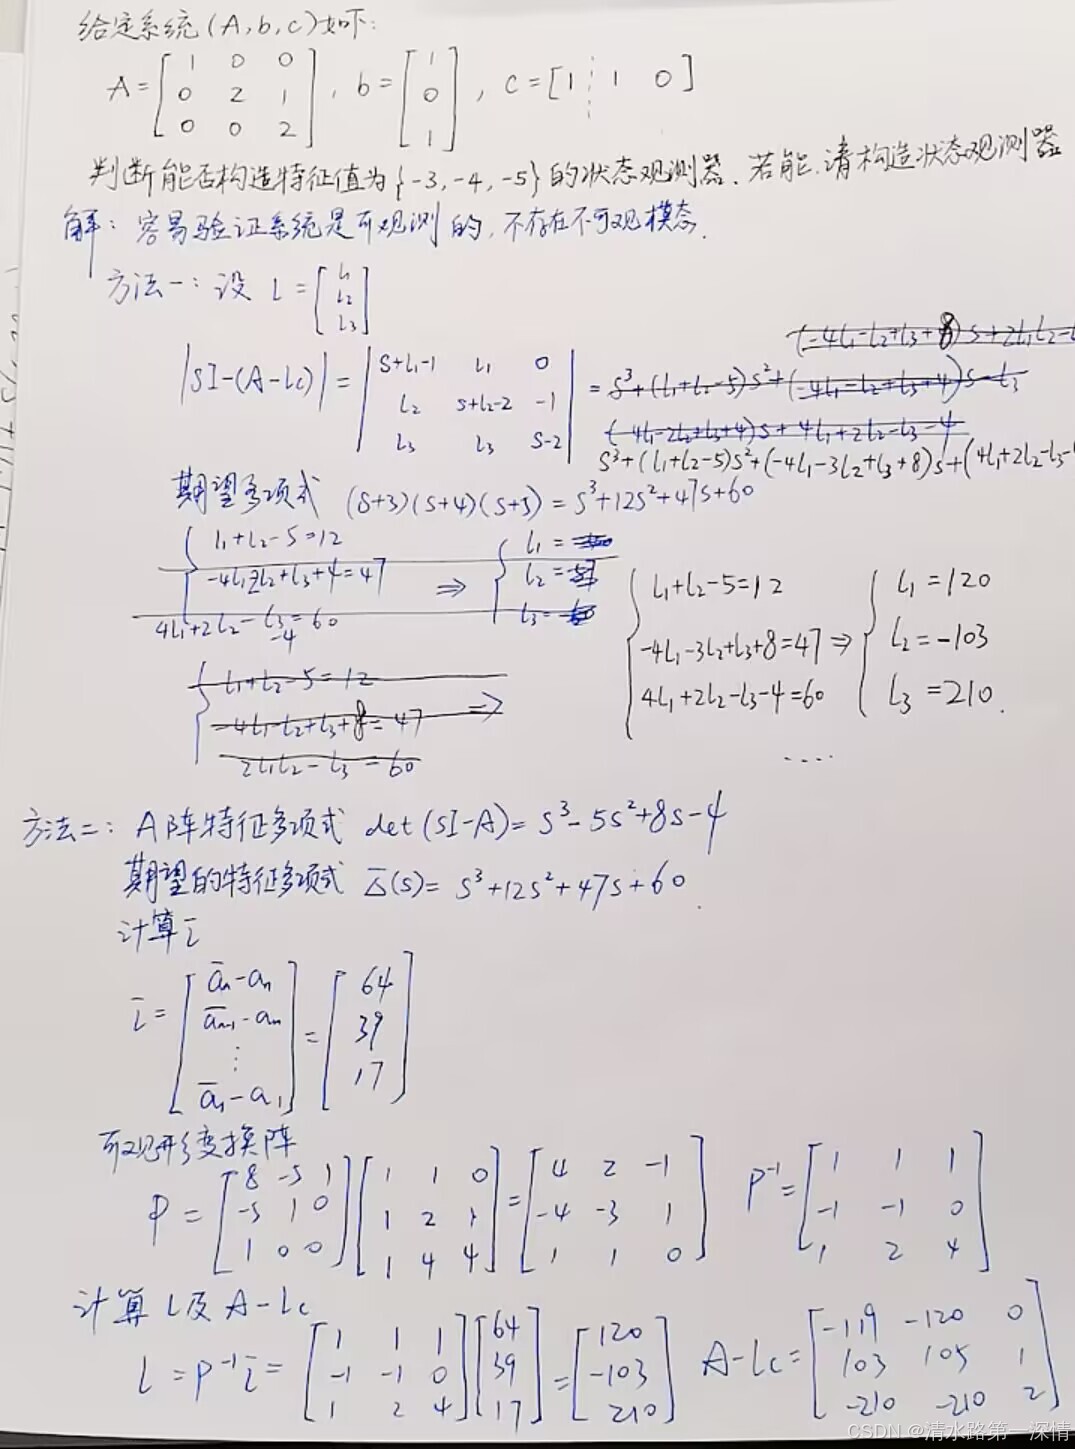 给定系统(A,b,c)如下:
A=[1 0 0; 0 2 1; 0 0 2], b=[1; 0; 1], c=[1 1 0]
判断能否构造特征值为{-3,-4,-5}的状态观测器.若能,请构造状态观测器
解: 容易验证系统是可观测的,不存在不可观模态.
方法一: 设 L=[l₁; l₂; l₃]
(-4l₁-l₂+l₃+8)s+2l₁l₂-l
|sI-(A-Lc)|=|s+l₁-1 l₁ 0; l₂ s+l₂-2 -1; l₃ l₃ s-2|=s³+(l₁+l₂-5)s²+(-4l₁-l₂+l₃+4)s-l₃
(-4l₁-2l₂+l₃+4)s+4l₁+2l₂-l₃-4
s³+(l₁+l₂-5)s²+(-4l₁-3l₂+l₃+8)s+(4l₁+2l₂-l₃-
期望多项式 (s+3)(s+4)(s+5)=s³+12s²+47s+60
l₁+l₂-5=12
-4l₁-2l₂+l₃+4=47
4l₁+2l₂-l₃-4=60
⇒ l₁= l₂= l₃=
l₁+l₂-5=12
-4l₁-l₂+l₃+8=47
2l₁l₂-l₃=60
⇒
l₁+l₂-5=12
-4l₁-3l₂+l₃+8=47
4l₁+2l₂-l₃-4=60
⇒ l₁=120
l₂=-103
l₃=210.
....
方法二: A阵特征多项式 det(sI-A)=s³-5s²+8s-4
期望的特征多项式 Δ̄(s)=s³+12s²+47s+60.
计算l̄
l̄=[āₙ-aₙ; āₙ₋₁-aₙ; ⋮; ā₁-a₁]=[64; 39; 17]
可观形变换阵
P=[8 -5 1; -5 1 0; 1 0 0][1 1 0; 1 2 1; 1 4 4]=[4 2 -1; -4 -3 1; 1 1 0] P⁻¹=[1 1 1; -1 -1 0; 1 2 4]
计算L及A-Lc
L=P⁻¹l̄=[1 1 1; -1 -1 0; 1 2 4][64; 39; 17]=[120; -103; 210] A-Lc=[-119 -120 0; 103 105 1; -210 -210 2]
CSDN @清水路第一深情